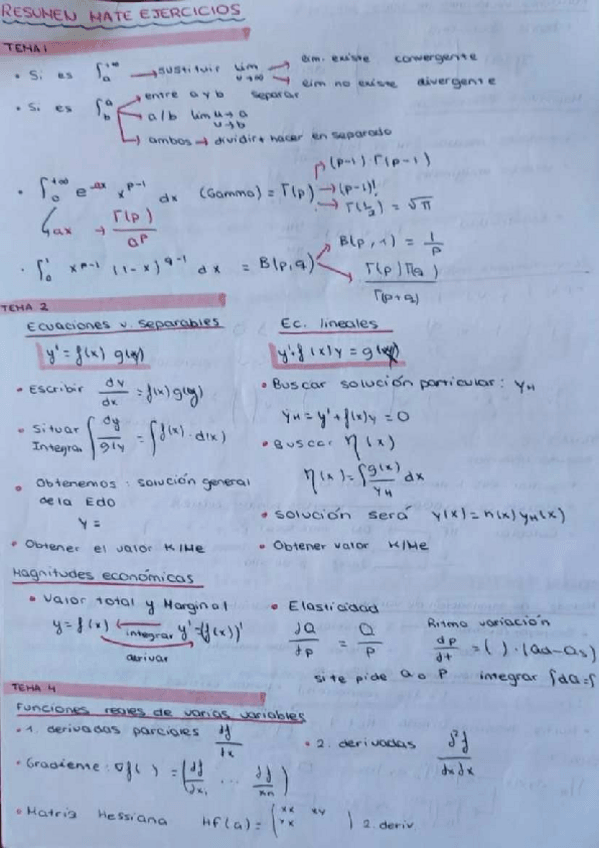 RESUMEN MATE EJERCICIOS
TEMA 1
• Si es ∫ₐ^{+∞} → sustituir lim u→∞ → lim. existe convergente
→ lim no existe divergente
• Si es ∫_b^a → entre a y b separar
→ a/b lim u→a u→b
→ ambos → dividir + hacer en separado
• ∫₀^{+∞} e^{-ax} x^{p-1} dx (Gamma) = Γ(p) → (p-1)·Γ(p-1)
→ (p-1)!
→ Γ(½) = √π
ax → Γ(p)/a^p
• ∫₀^1 x^{p-1} (1-x)^{q-1} dx = B(p,q) → B(p,1) = 1/p
→ Γ(p)Γ(q)/Γ(p+q)
TEMA 2
Ecuaciones v. separables
y' = f(x) g(y)
• Escribir dy/dx = f(x)g(y)
• Situar ∫ dy/g(y) = ∫ f(x)·d(x)
Integrar
• Obtenemos: solución general
de la EDO
y =
• Obtener el valor K/Me
Ec. lineales
y'+f(x)y = g(x)
• Buscar solución particular: y_H
y_H = y'+f(x)y = 0
• Buscar η(x)
η(x) = ∫ g(x)/y_H dx
• solución será y(x) = n(x) y_H(x)
• Obtener valor K/Me
Magnitudes económicas
• Valor total y Marginal
y = f(x) ← integrar y' = (f(x))'
derivar
• Elasticidad
∂Q/∂p = Q/P
Ritmo variación
dp/dt = ( )·(Qd-Qs)
si te pide Q o P integrar ∫dQ=∫
TEMA 4
Funciones reales de varias variables
• 1. derivadas parciales ∂f/∂x
• 2. derivadas ∂²f/∂x∂x
• Gradiente: ∇f( ) = (∂f/∂x₁ ... ∂f/∂xn)
• Matriz Hessiana Hf(a) = (xx xy
yx ) 2. deriv